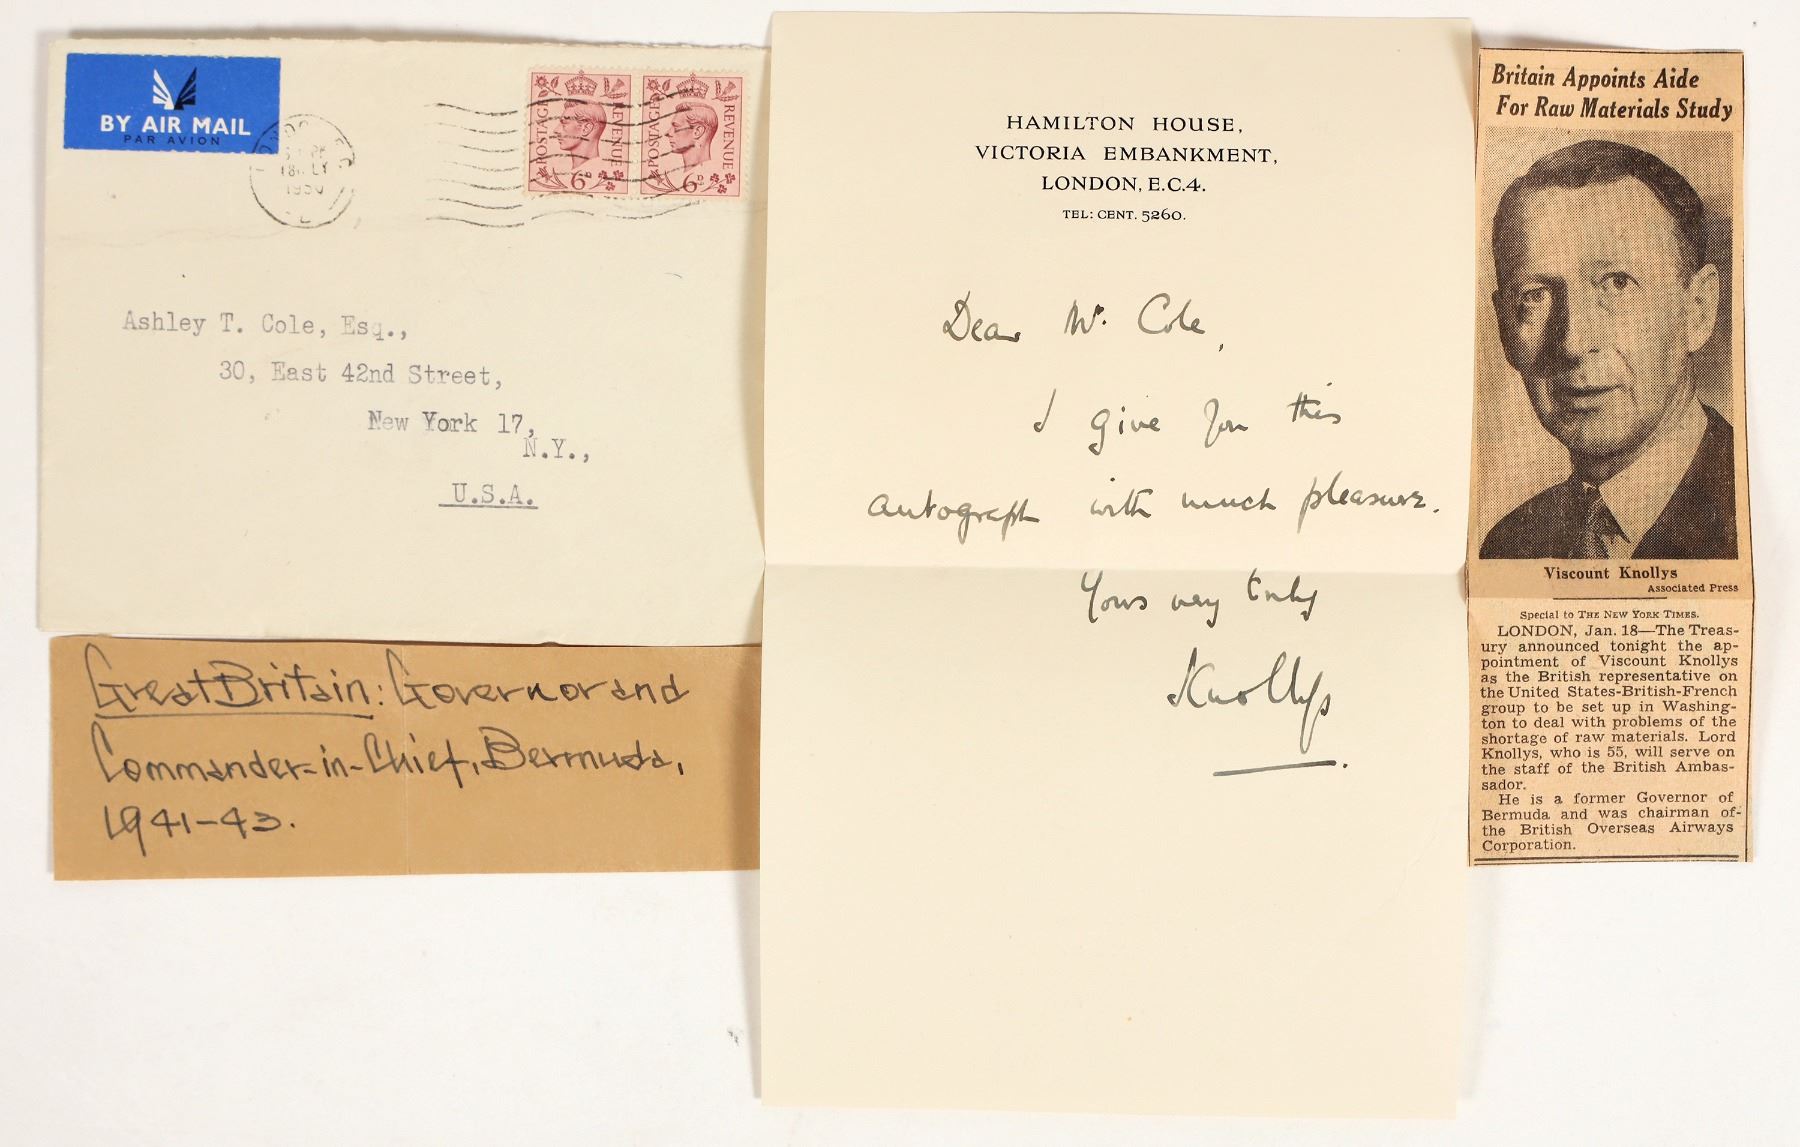 BY AIR MAIL
PAR AVION
1950
POSTAGE
REVENUE
6D
POSTAGE
REVENUE
6D
Ashley T. Cole, Esq.,
30, East 42nd Street,
New York 17,
N.Y.,
U.S.A.
Great Britain: Governor and
Commander-in-Chief, Bermuda,
1941-43.
HAMILTON HOUSE,
VICTORIA EMBANKMENT,
LONDON, E.C.4.
TEL: CENT. 5260.
Dear Mr. Cole,
I give you this
autograph with much pleasure.
Yours very truly
Knollys
Britain Appoints Aide
For Raw Materials Study
Viscount Knollys
Associated Press
Special to THE NEW YORK TIMES.
LONDON, Jan. 18—The Treas-
ury announced tonight the ap-
pointment of Viscount Knollys
as the British representative on
the United States-British-French
group to be set up in Washing-
ton to deal with problems of the
shortage of raw materials. Lord
Knollys, who is 55, will serve on
the staff of the British Ambas-
sador.
He is a former Governor of
Bermuda and was chairman of
the British Overseas Airways
Corporation.